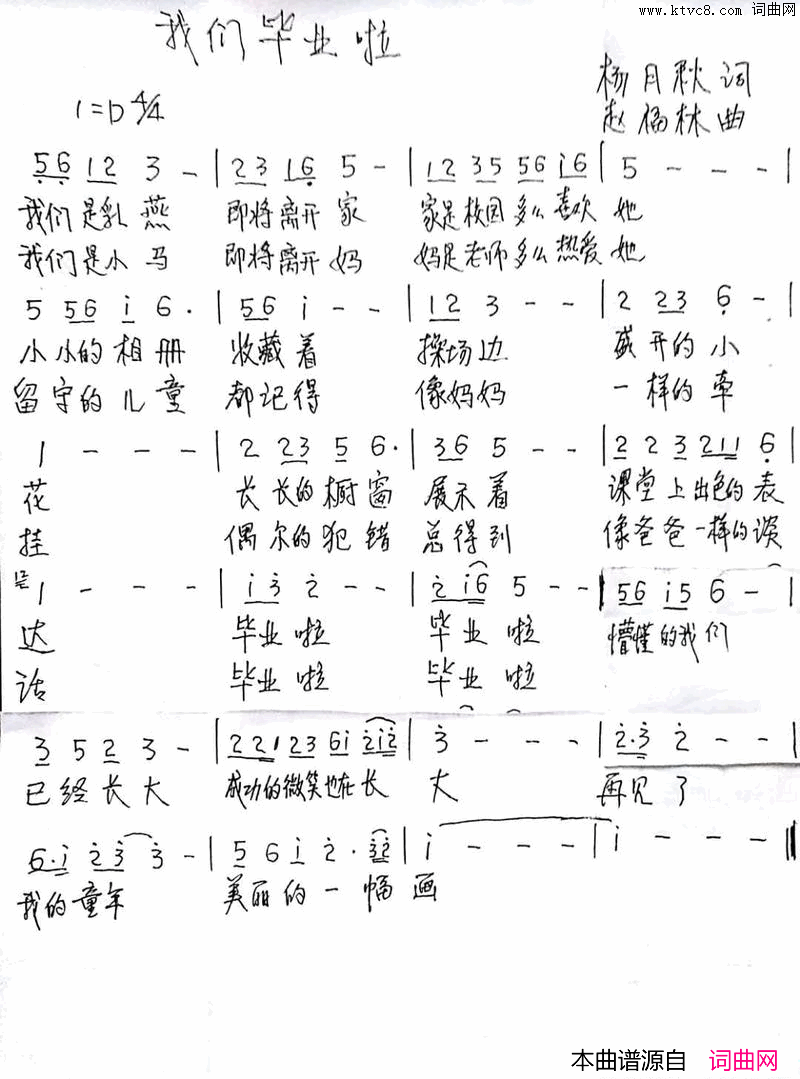 www.ktvc8.com 词曲网
我们毕业啦
杨月秋词
1=D 4/4
赵儒林曲
56 12 3 - | 23 16 5 - | 12 35 56 i6 | 5 - - - |
我们是乳燕 即将离开家 家是校园多么喜欢她
我们是小马 即将离开妈 妈是老师多么热爱她
5 56 i 6· | 56 i - - | 12 3 - - | 2 23 6 - |
小小的相册 收藏着 操场边 盛开的小
留守的儿童 都记得 像妈妈 一样的牵
1 - - - | 2 23 5 6· | 36 5 - - | 2 2 3 211 6 |
花 长长的橱窗 展示着 课堂上出色的表
挂 偶尔的犯错 总得到 像爸爸一样的谈
1 - - - | i3 2 - - | 2 i6 5 - - | 56 i5 6 - |
达 毕业啦 毕业啦 懵懂的我们
话 毕业啦 毕业啦
3 5 2 3 - | 221 23 6i 2i2 | 3 - - - | 2·3 2 - - |
已经长大 成功的微笑也在长大 再见了
6·i 23 3 - | 5 6 i 2· 32 | i - - - | i - - - ‖
我的童年 美丽的一幅画
本曲谱源自 词曲网